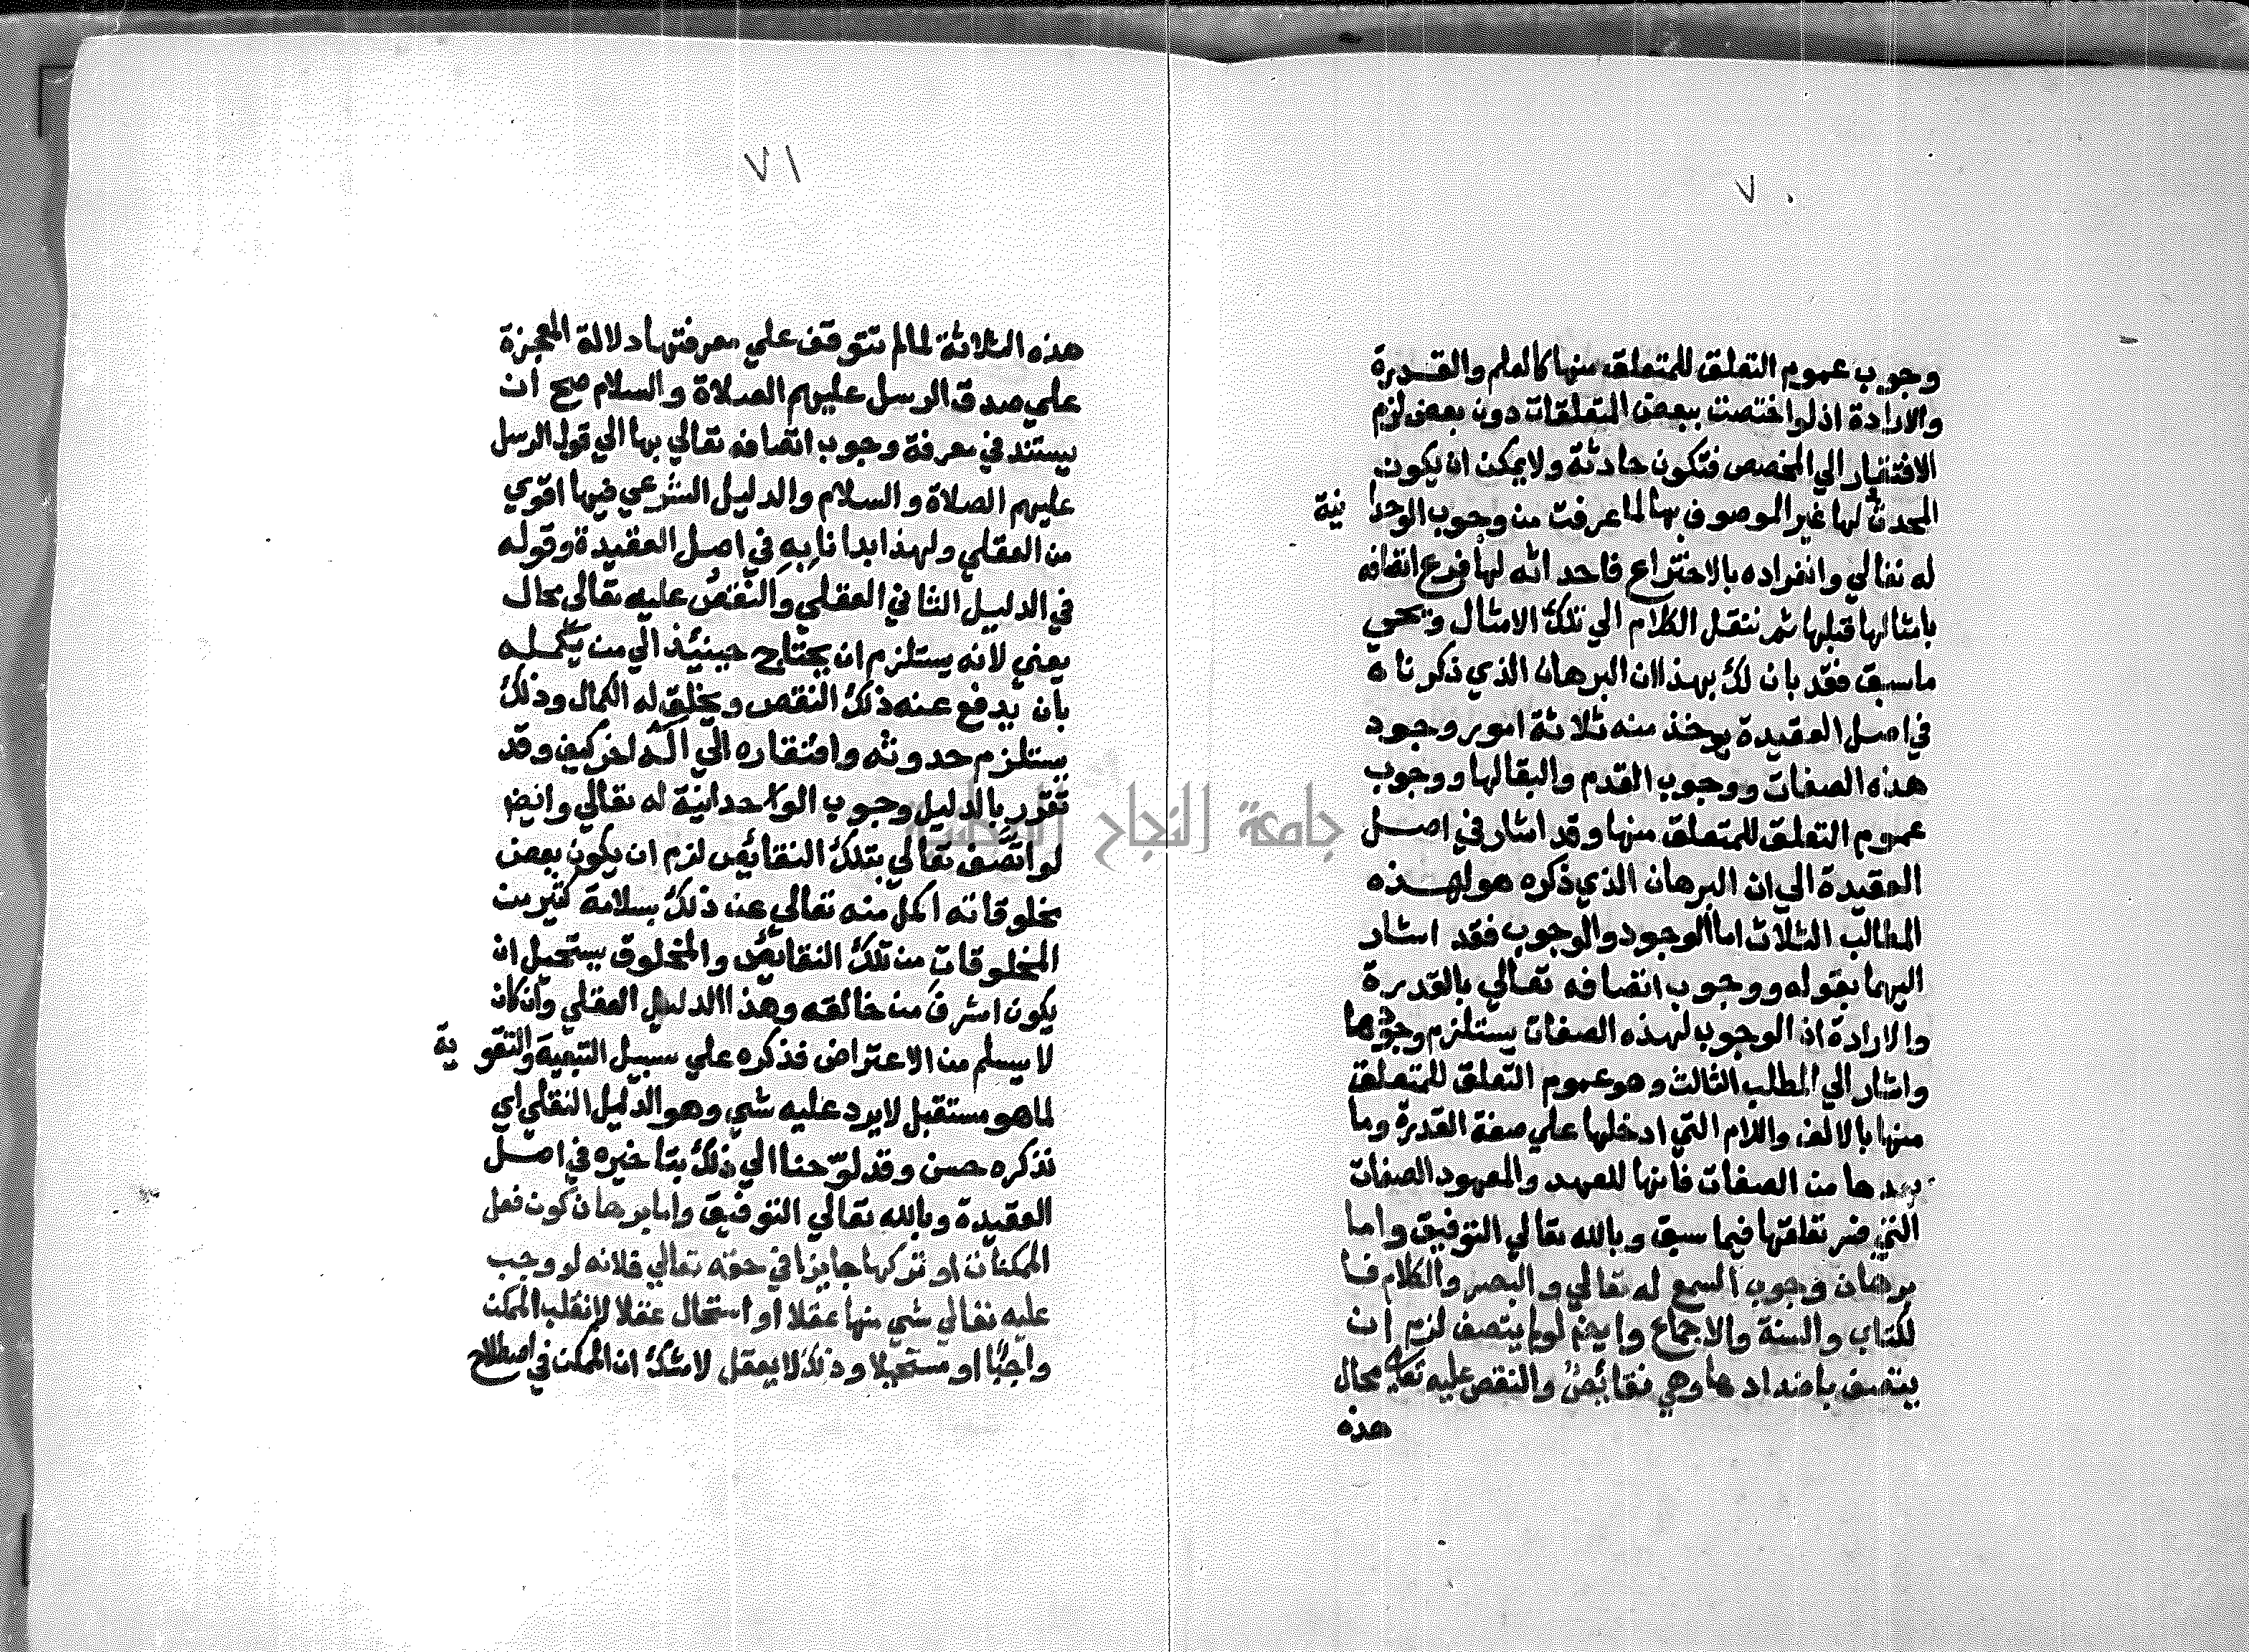 ٧٠
وجوب عموم التعلق للمتعلق منها كالعلم والقدرة
والارادة اذ لو اختصت ببعض المتعلقات دون بعض لزم
الافتقار الي المخصص فتكون حادثة ولا يمكن ان يكون
المحدث لها غير الموصوف بها لما عرفت من وجوب الوحدانية
له تعالي وانفراده بالاختراع فاحداثه لها فرع اتصافه
بامثالها قبلها ثم ننقل الكلام الي تلك الامثال ويجي
ما سبق فقد بان لك بهذا ان البرهان الذي ذكرناه
في اصل العقيدة يوخذ منه ثلاثة امور وجود
هذه الصفات ووجوب القدم والبقا لها ووجوب
عموم التعلق للمتعلق منها وقد اشار في اصل
العقيدة الي ان البرهان الذي ذكره هو لهذه
المطالب الثلاث اما الوجود والوجوب فقد اشار
اليهما بقوله ووجوب اتصافه تعالي بالقدرة
والارادة اذ الوجوب لهذه الصفات يستلزم وجودها
واشار الي المطلب الثالث وهو عموم التعلق للمتعلق
منها بالالف واللام التي ادخلها علي صفة القدرة وما
بعدها من الصفات فانها للعهد والمعهود الصفات
التي فسر تعلقها فيما سبق وبالله تعالي التوفيق واما
برهان وجوب السمع له تعالي والبصر والكلام فا
لكتاب والسنة والاجماع وايض لو لم يتصف لزم ان
يتصف باضدادها وهي نقائص والنقص عليه تعالي محال
هذه
٧١
هذه الثلاثة لما لم تتوقف علي معرفتها دلالة المعجزة
علي صدق الرسل عليهم الصلاة والسلام صح ان
يستند في معرفة وجوب اتصافه تعالي بها الي قول الرسل
عليهم الصلاة والسلام والدليل الشرعي فيها اقوي
من العقلي ولهذا ابدانا به في اصل العقيدة وقوله
في الدليل الثاني العقلي والنقص عليه تعالي محال
يعني لانه يستلزم ان يحتاج حينئذ الي من يكمله
بان يدفع عنه ذلك النقص ويخلق له الكمال وذلك
يستلزم حدوثه وافتقاره الي اله اخر كيف وقد
تقرر بالدليل وجوب الواحدانية له تعالي وايض
لو اتصف تعالي بتلك النقائص لزم ان يكون بعض
مخلوقاته اكمل منه تعالي عن ذلك بسلامة كثير من
المخلوقات من تلك النقائص والمخلوق يستحيل ان
يكون اشرف من خالقه وهذا الدليل العقلي وان كان
لا يسلم من الاعتراض فذكره علي سبيل التبعية والتقوية
لما هو مستقبل لا يرد عليه شي وهو الدليل النقلي اي
نذكره حسن وقد لوحنا الي ذلك بتاخيره في اصل
العقيدة وبالله تعالي التوفيق واما برهان كون فعل
الممكنات او تركها جايزا في حقه تعالي فلانه لو وجب
عليه تعالي شي منها عقلا او استحال عقلا لانقلب الممكن
واجبا او مستحيلا وذلك لا يعقل لا شك ان الممكن في اصطلاح
جامعة النجاح الوطنية